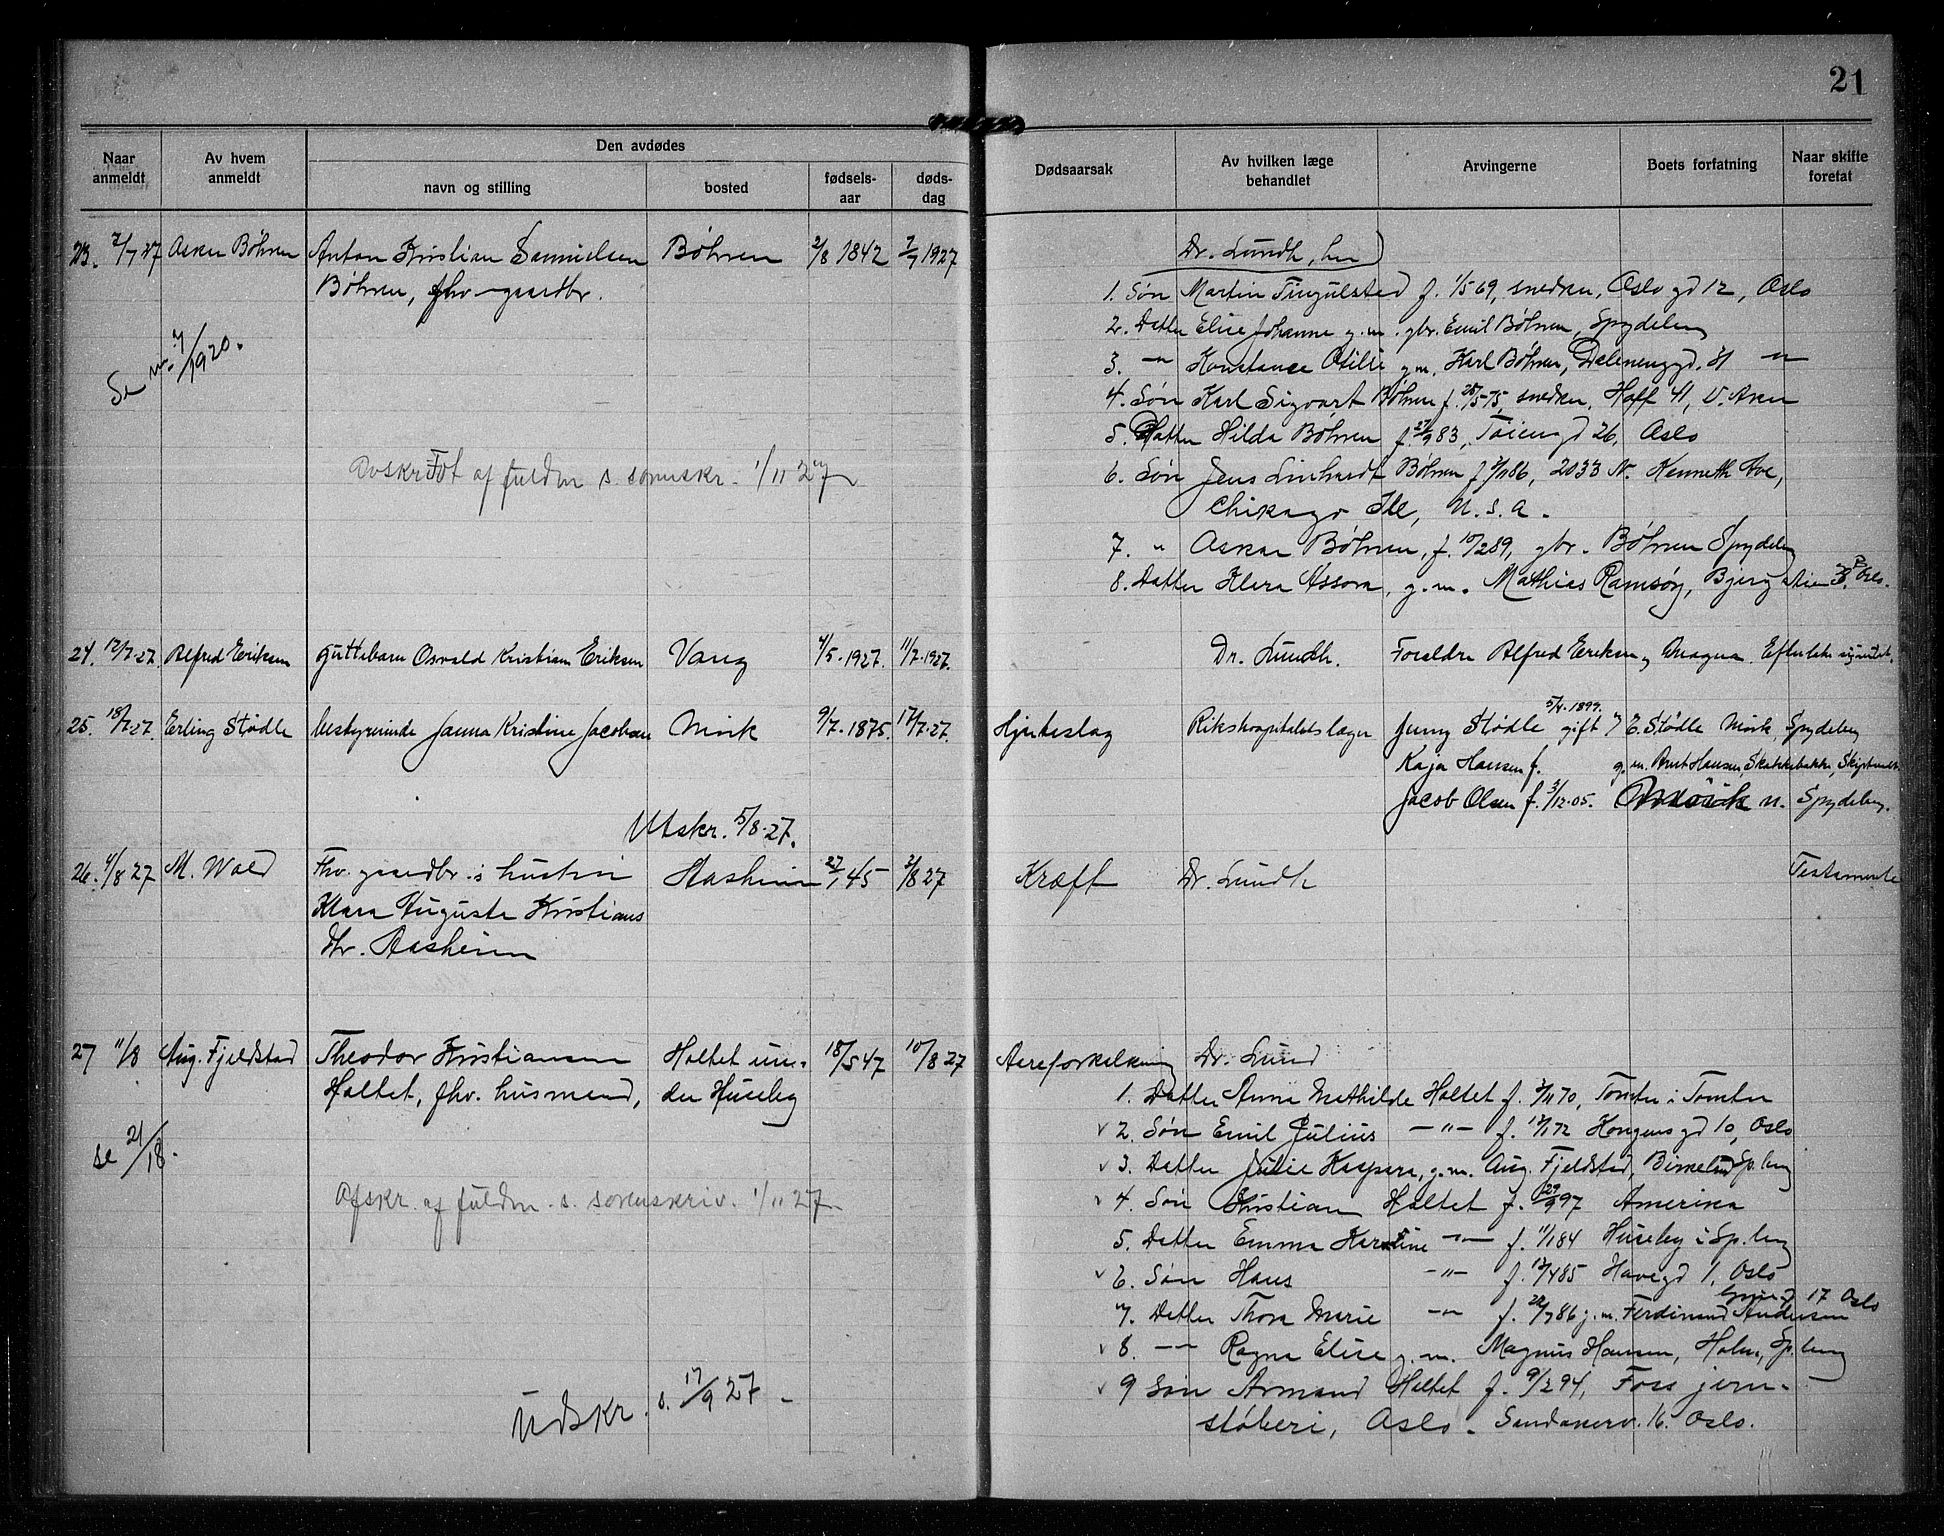 21
Naar anmeldt
Av hvem anmeldt
Den avdødes
navn og stilling
bosted
fødsels-aar
døds-dag
Dødsaarsak
Av hvilken læge behandlet
Arvingerne
Boets forfatning
Naar skifte foretat
23. 7/7 27 Asker Bøhren Anton Kristian Samuelsen Bøhren 2/8 1842 7/7 1927
Bøhren, fhv. gaardbr.
Dr. Lundh, her
1. Søn Martin Tingulstad f. 1/5 69, snedker, Oslo gd 12, Oslo
2. Datter Elise Johanne g.m. gbr. Emil Bøhren, Spydeberg
3. -"- Konstance Otilie g.m. Karl Bøhren, Dælenenggd. 31 -"-
4. Søn Karl Sigvart Bøhren f. 28/5 75, snedker, Hoff 41, V. Aker
5. Datter Hilda Bøhren f. 27/9 83, Tøiengd 26, Oslo
6. Søn Jens Linhardt Bøhren f. 3/1 86, 2033 N. Kenneth Ave,
Chikago Ill, U.S.A.
7. " Askar Bøhren, f. 10/2 89, gbr. Bøhren Spydeberg
8. Datter Klara Assora, g.m. Mathias Ramsøy, Bjerg Oslo.
Se nr. 7/1920.
af fuldm s. sorenskr. 1/11 27
24. 12/7-27. Alfred Eriksen Guttebarn Osvald Kristian Eriksen Vang 4/5-1927. 11/7-1927. Dr. Lundh. Foreldre Alfred Eriksen og Magna. Efterlikt
25. 18/7-27. Erling Stødle bestyrerinde Janna Kristine Jacobsen Mørk 9/7-1875. 17/7-27. Hjerteslag Rikshospitalets læger Jenny Stødle 5/4-1899. gift m E. Stødle Mørk, Spydeberg
Kaja Hansen f. g.m. Arnt Hansen, Skakkebakke, Skiptvedt
Jacob Olsen f. 3/12-05. Mørk n. Spydeberg.
Utskr. 5/8-27.
26. 4/8 27 M. Wold Fhv. gaardbr.s hustru Aasheim 27/1 45 2/8 27 Kræft Dr. Lundh Testamente
Klara Augusta Kristians
dtr. Aasheim
27 11/8 Aug. Fjeldstad Theodor Kristiansen Holtet un- 18/5 47 10/8 27 Aareforkalkning Dr. Lund
Holtet, fhv. husmand, der Huseby
1. Datter Anna Mathilde Holtet f. 3/11 70, Tomter i Tomter
2. Søn Emil Julius -"- f. 17/1 72 Kongens gd 10, Oslo
3. Datter Julie Kaspara, g.m. Aug. Fjeldstad, Birkelund Sp.berg
4. Søn Kristian Holtet f. 29/9 97 Amerika
5. Datter Emma Karoline -"- f. 11/1 84 Huseby i Sp.berg
6. Søn Hans -"- f. 17/4 85 Havegd 1, Oslo
17 Oslo
7. Datter Thora Marie -"- f. 22/7 86 g.m. Ferdinand Andersen
8. -"- Ragna Elise g.m. Magnus Hansen, Holm, Sp.berg
9 Søn Armand Holtet f. 9/2 94, Foss jern-
støberi, Oslo. Sandakerv. 16. Oslo.
se 21/18.
Afskr. af fuldm. s. sorenskriv. 1/11 27
Udskr. s. 17/9 27 -